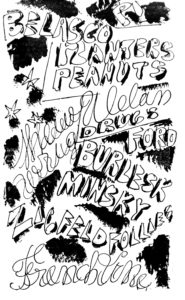 BELASCO
PLANTERS
PEANUTS
DRUGS
FORD
BURLESK
MINSKY
ZIGFELD FOLLIES
Frenchline